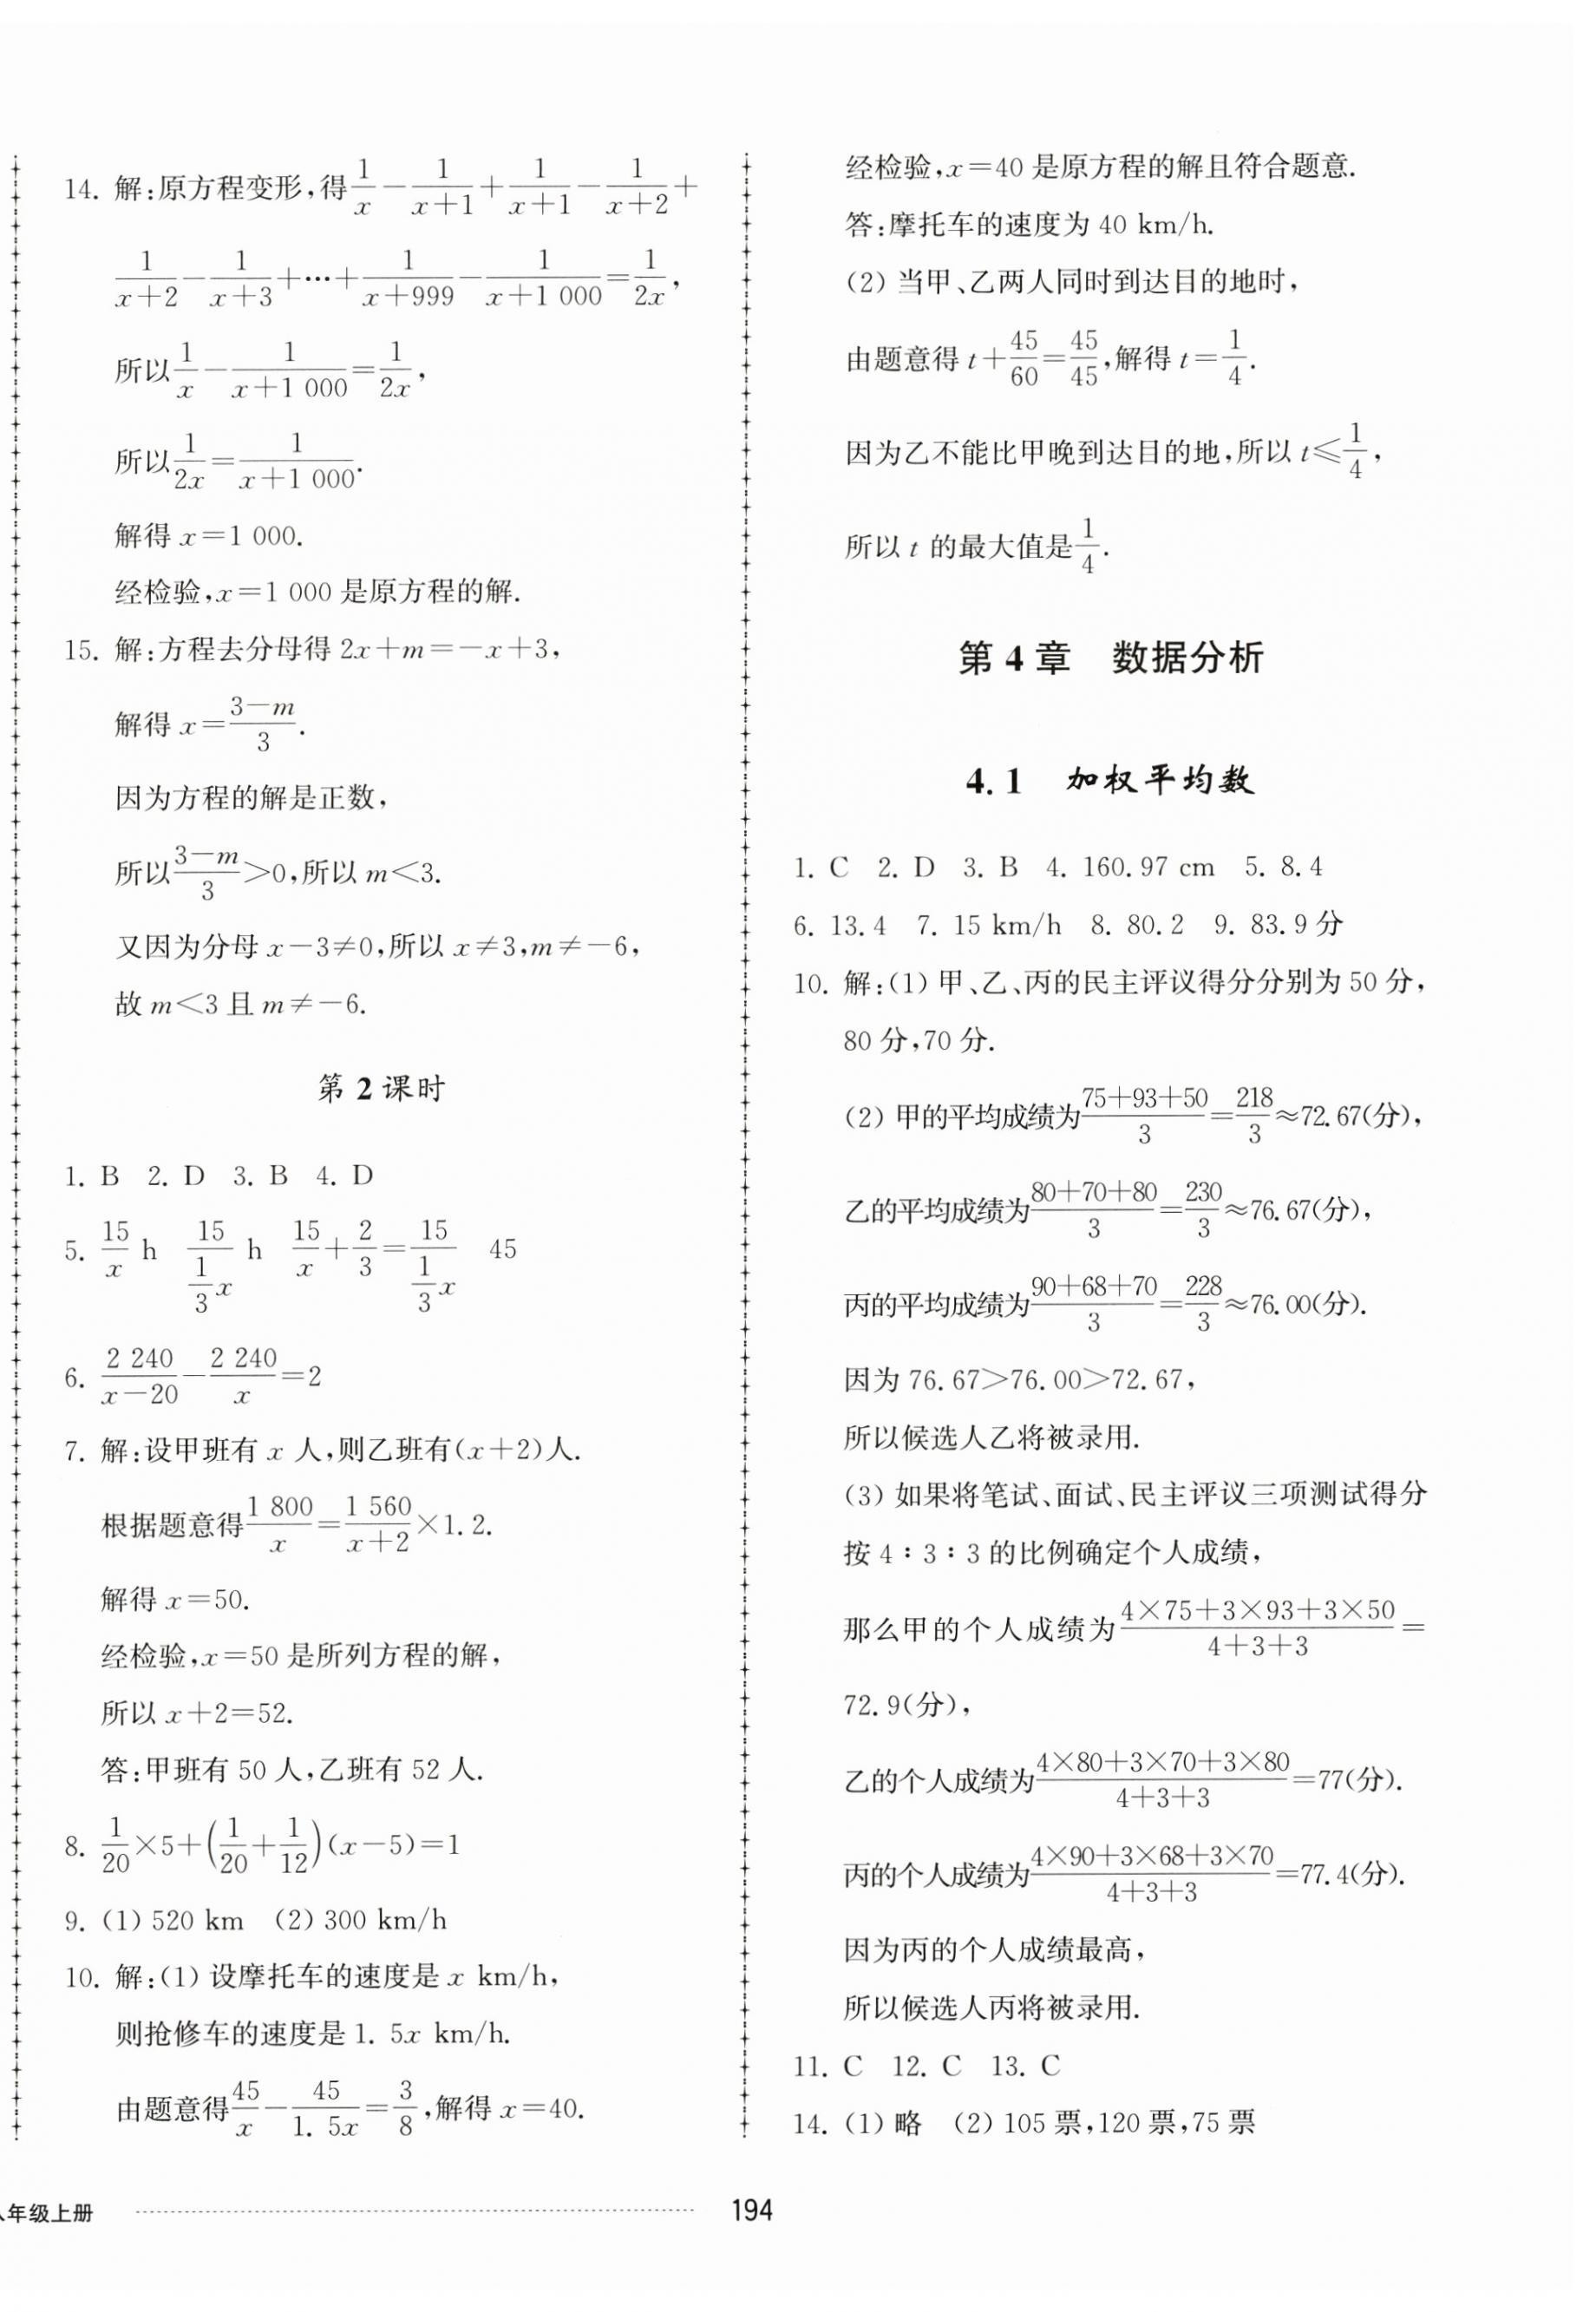 14. 解:原方程变形,得$\frac{1}{x}-\frac{1}{x+1}+\frac{1}{x+1}-\frac{1}{x+2}+$
$\frac{1}{x+2}-\frac{1}{x+3}+\cdots+\frac{1}{x+999}-\frac{1}{x+1 000}=\frac{1}{2x}$,
所以$\frac{1}{x}-\frac{1}{x+1 000}=\frac{1}{2x}$,
所以$\frac{1}{2x}=\frac{1}{x+1 000}$.
解得 x=1 000.
经检验,x=1 000 是原方程的解.
15. 解:方程去分母得 2x+m=-x+3,
解得 $x=\frac{3-m}{3}$.
因为方程的解是正数,
所以$\frac{3-m}{3}>0$,所以 m<3.
又因为分母 x-3≠0,所以 x≠3,m≠-6,
故 m<3 且 m≠-6.
第 2 课时
1. B 2. D 3. B 4. D
5. $\frac{15}{x}$ h $\frac{15}{\frac{1}{3}x}$ h $\frac{15}{x}+\frac{2}{3}=\frac{15}{\frac{1}{3}x}$ 45
6. $\frac{2 240}{x-20}-\frac{2 240}{x}=2$
7. 解:设甲班有 x 人,则乙班有(x+2)人.
根据题意得$\frac{1 800}{x}=\frac{1 560}{x+2}×1.2$.
解得 x=50.
经检验,x=50 是所列方程的解,
所以 x+2=52.
答:甲班有 50 人,乙班有 52 人.
8. $\frac{1}{20}×5+\left(\frac{1}{20}+\frac{1}{12}\right)(x-5)=1$
9. (1) 520 km (2) 300 km/h
10. 解:(1) 设摩托车的速度是 x km/h,
则抢修车的速度是 1. 5x km/h.
由题意得$\frac{45}{x}-\frac{45}{1. 5x}=\frac{3}{8}$,解得 x=40.
经检验,x=40 是原方程的解且符合题意.
答:摩托车的速度为 40 km/h.
(2) 当甲、乙两人同时到达目的地时,
由题意得 $t+\frac{45}{60}=\frac{45}{45}$,解得 $t=\frac{1}{4}$.
因为乙不能比甲晚到达目的地,所以 $t⩽\frac{1}{4}$,
所以 t 的最大值是$\frac{1}{4}$.
第 4 章 数据分析
4. 1 加权平均数
1. C 2. D 3. B 4. 160. 97 cm 5. 8. 4
6. 13. 4 7. 15 km/h 8. 80. 2 9. 83. 9 分
10. 解:(1) 甲、乙、丙的民主评议得分分别为 50 分,
80 分,70 分.
(2) 甲的平均成绩为$\frac{75+93+50}{3}=\frac{218}{3}$≈72. 67(分),
乙的平均成绩为$\frac{80+70+80}{3}=\frac{230}{3}$≈76. 67(分),
丙的平均成绩为$\frac{90+68+70}{3}=\frac{228}{3}$≈76. 00(分).
因为 76. 67>76. 00>72. 67,
所以候选人乙将被录用.
(3) 如果将笔试、面试、民主评议三项测试得分
按 4∶3∶3 的比例确定个人成绩,
那么甲的个人成绩为$\frac{4×75+3×93+3×50}{4+3+3}$=
72. 9(分),
乙的个人成绩为$\frac{4×80+3×70+3×80}{4+3+3}$=77(分).
丙的个人成绩为$\frac{4×90+3×68+3×70}{4+3+3}$=77. 4(分).
因为丙的个人成绩最高,
所以候选人丙将被录用.
11. C 12. C 13. C
14. (1) 略 (2) 105 票,120 票,75 票
年级上册
194